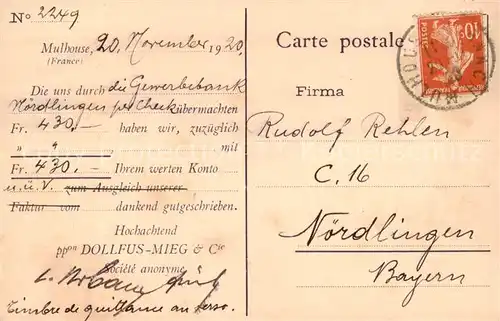 No 2249
Mulhouse, 20. November 1920.
(France)
Die uns durch die Gewerbebank
Nördlingen per Check übermachten
Fr. 430.— haben wir, zuzüglich
" " mit
Fr. 430.— Ihrem werten Konto
u. ü. V. zum Ausgleich unserer
Faktur vom dankend gutgeschrieben.
Hochachtend
ppon DOLLFUS-MIEG & Cie
Société anonyme
Timbre de quittance au verso.
Carte postale
POSTES
10
Firma
Rudolf Rehlen
C. 16
Nördlingen
Bayern